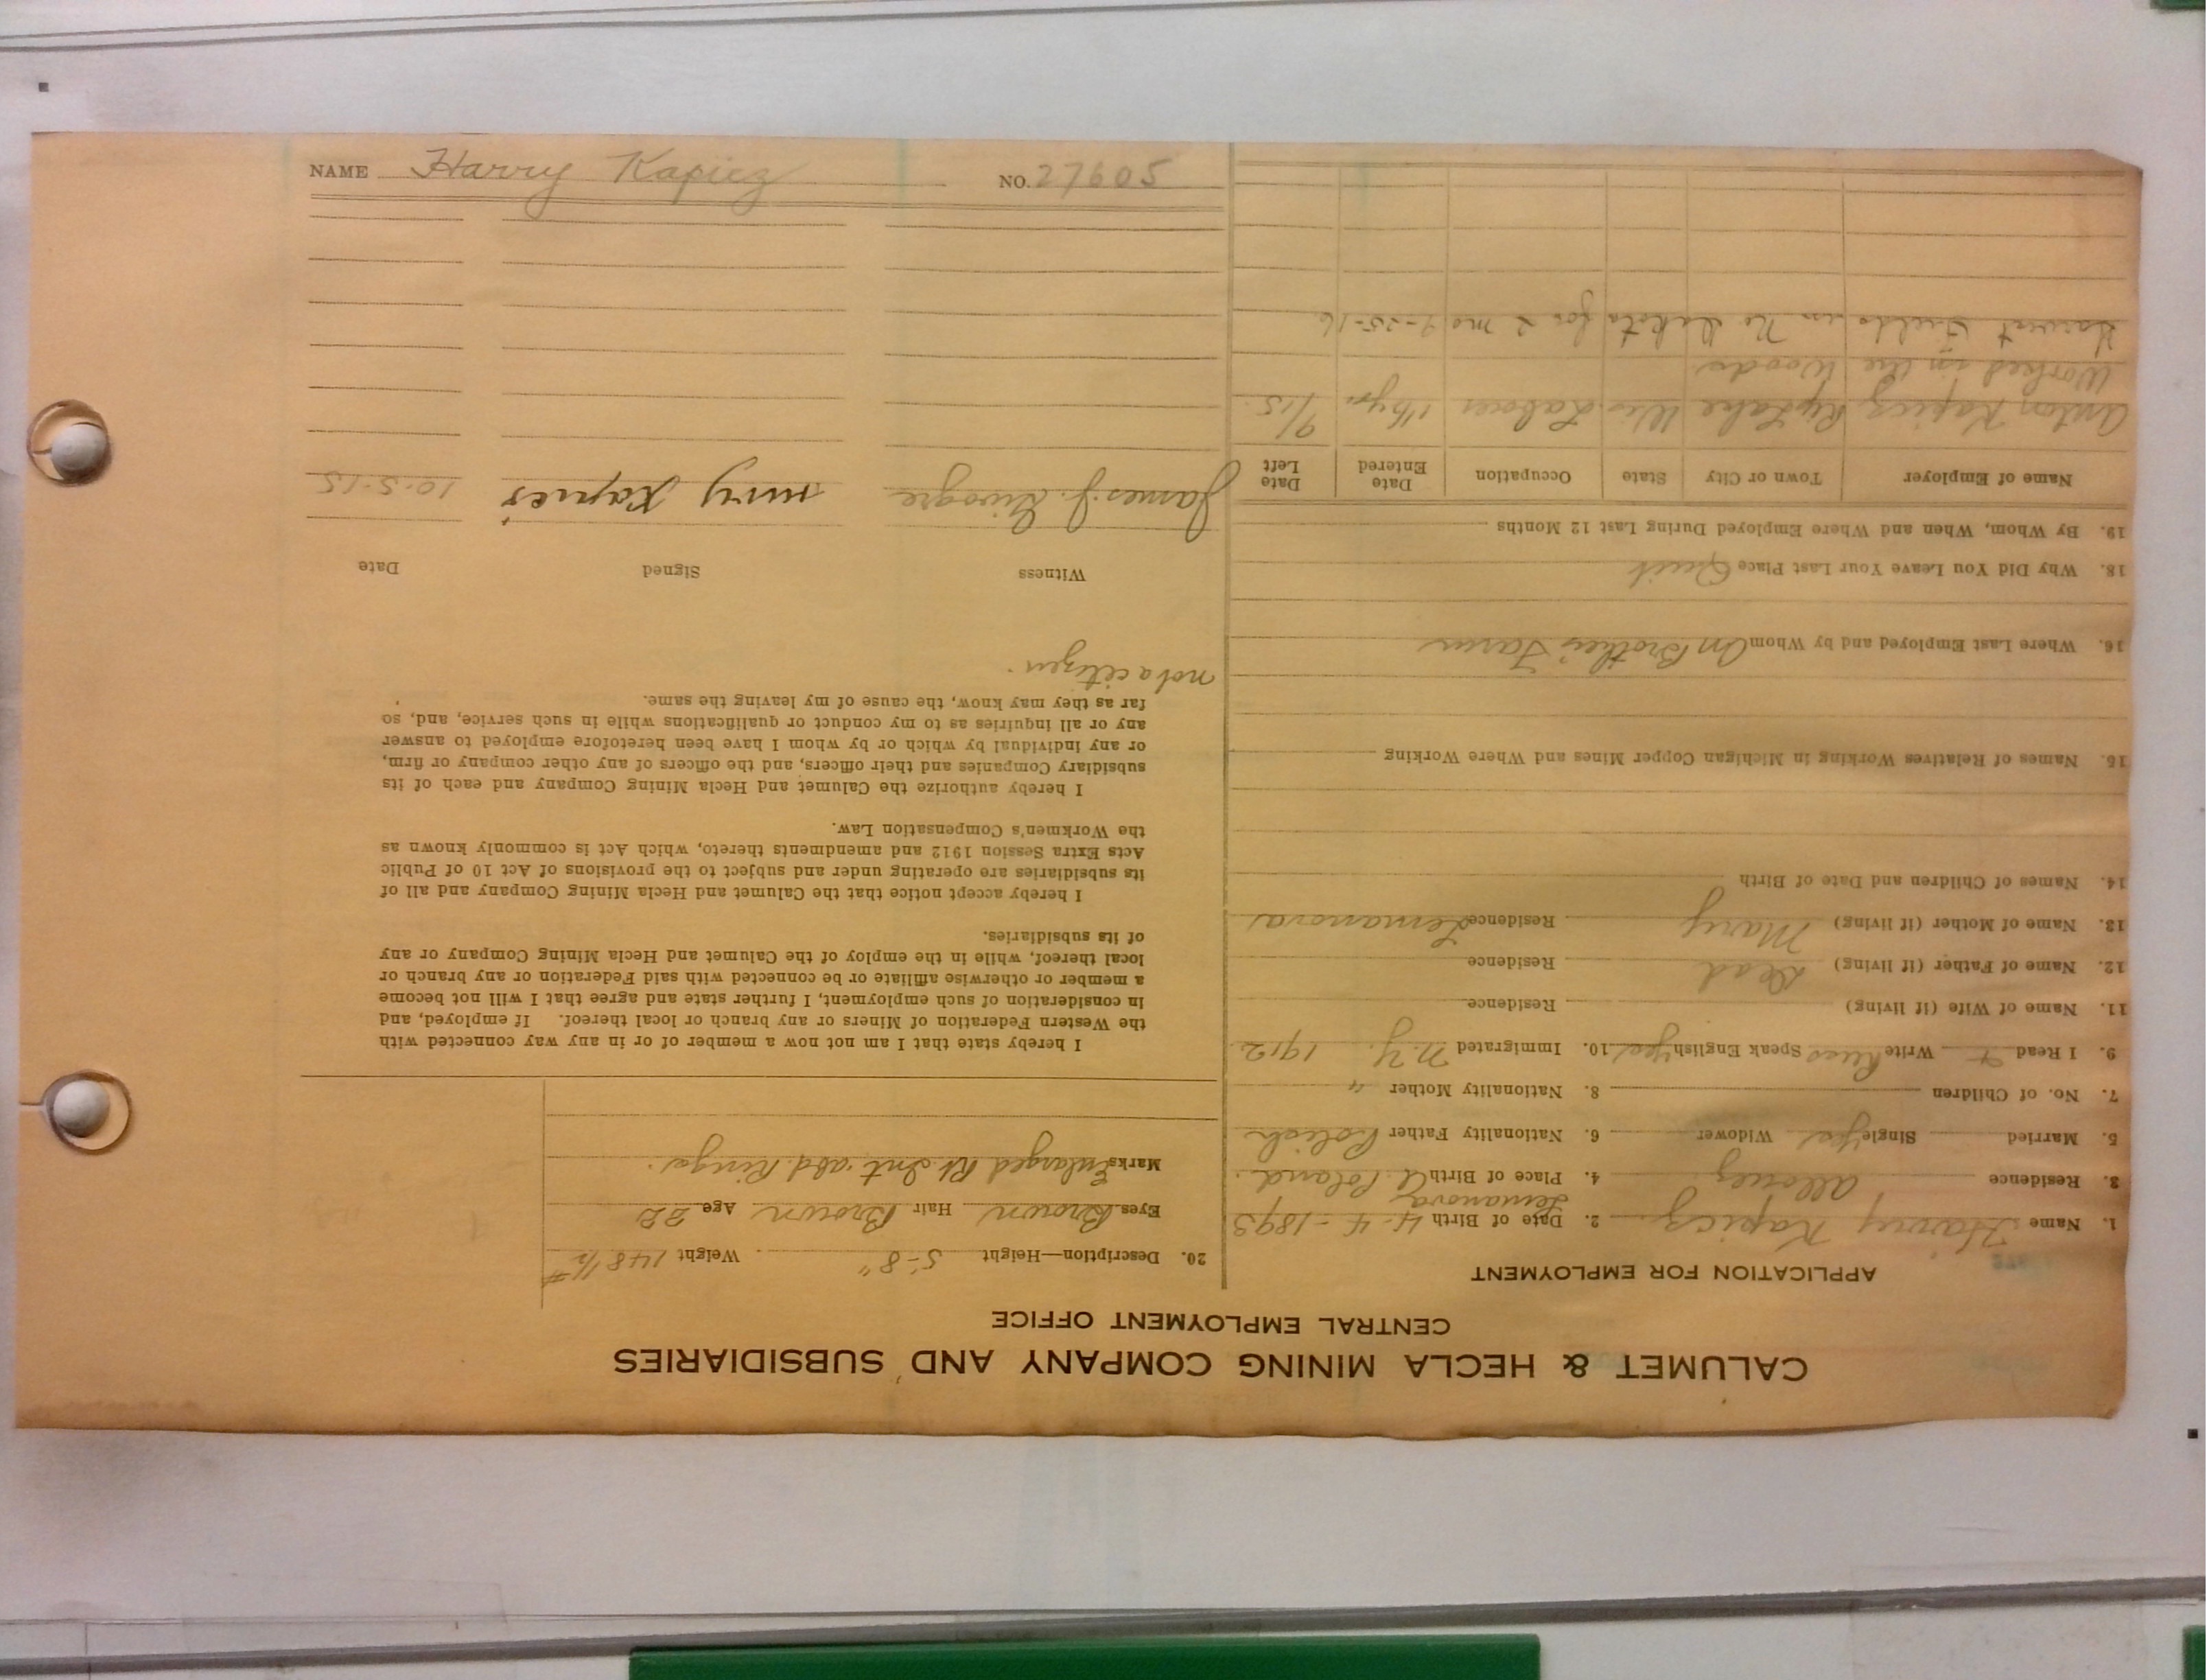 CALUMET & HECLA MINING COMPANY AND SUBSIDIARIES
CENTRAL EMPLOYMENT OFFICE
APPLICATION FOR EMPLOYMENT
1. Name Harry Kapicz 2. Date of Birth 4-4-1893
Lemanova
3. Residence Allouez 4. Place of Birth Poland.
5. Married Single Yes Widower 6. Nationality Father Polish
7. No. of Children 8. Nationality Mother "
9. I Read + Write Russ Speak English Yes 10. Immigrated N.Y. 1912
11. Name of Wife (if living) Residence
12. Name of Father (if living) Dead Residence
13. Name of Mother (if living) Mary Residence Lemanova
14. Names of Children and Date of Birth
15. Names of Relatives Working in Michigan Copper Mines and Where Working
16. Where Last Employed and by Whom On Brothers Farm
18. Why Did You Leave Your Last Place Quit
19. By Whom, When and Where Employed During Last 12 Months
Name of Employer Town or City State Occupation Date Entered Date Left
Anton Kapicz Rip Lake Wis Laborer 1½ yr. 9/15.
Worked in the Woods
Harvest Fields in No Dakota for 2 mo 9-25-16
20. Description—Height 5-8" Weight 148½#
Eyes Brown Hair Brown Age 22
Marks Enlarged Rt. Int. abd. Rings.
I hereby state that I am not now a member of or in any way connected with
the Western Federation of Miners or any branch or local thereof. If employed, and
in consideration of such employment, I further state and agree that I will not become
a member or otherwise affiliate or be connected with said Federation or any branch or
local thereof, while in the employ of the Calumet and Hecla Mining Company or any
of its subsidiaries.
I hereby accept notice that the Calumet and Hecla Mining Company and all of
its subsidiaries are operating under and subject to the provisions of Act 10 of Public
Acts Extra Session 1912 and amendments thereto, which Act is commonly known as
the Workmen's Compensation Law.
I hereby authorize the Calumet and Hecla Mining Company and each of its
subsidiary Companies and their officers, and the officers of any other company or firm,
or any individual by which or by whom I have been heretofore employed to answer
any or all inquiries as to my conduct or qualifications while in such service, and, so
far as they may know, the cause of my leaving the same.
not a citizen.
Witness Signed Date
James J. Kapies 10-5-15
NAME Harry Kapicz NO. 27605